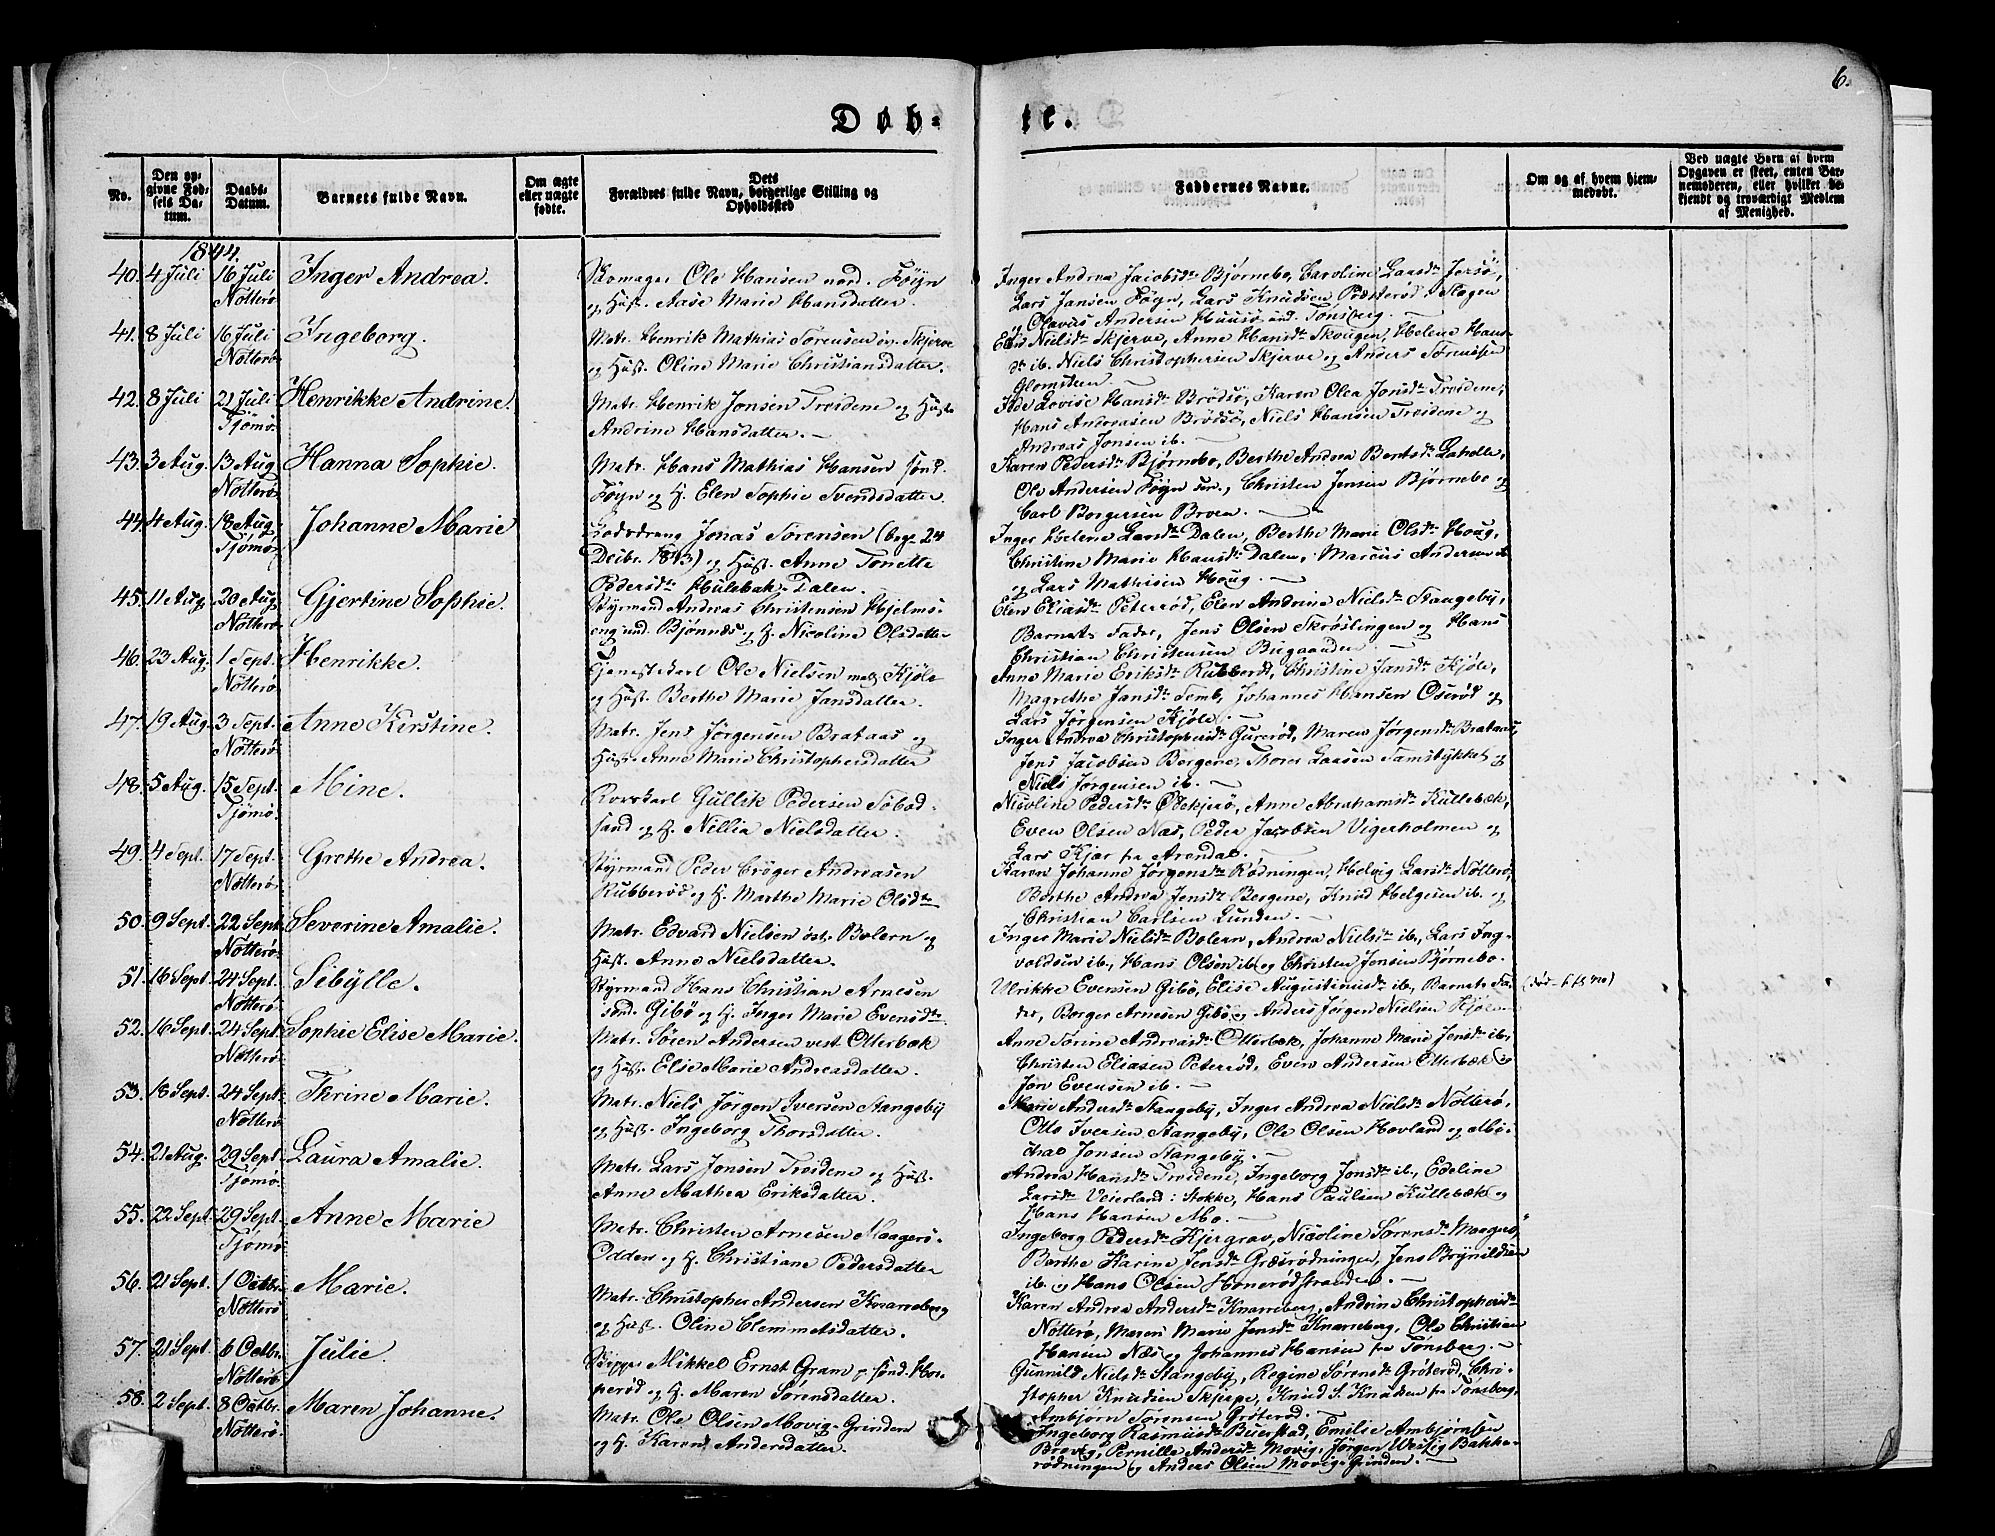 6.
Døb-
te.
No.
Den opgivne Fødsels Datum.
Daabs-Datum.
Barnets fulde Navn.
Om ægte eller uægte fødte.
Dets Forældres fulde Navn, borgerlige Stilling og Opholdssted
Faddernes Navne.
Om og af hvem hjemmedøbt.
Ved uægte Børn af hvem Opgaven er skeet, enten Barnemoderen, eller hvilket bekjendt og troværdigt Medlem af Menighed.
1844.
40. 4 Juli 16 Juli Nötterö Inger Andrea.
Skomager Ole Hansen nord. Föyn
og Hust. Aase Marie Hansdatter.
Inger Andrea Jacobsdr. Björnebo, Caroline Larsdr. Jersö,
Lars Jansen Föyn, Lars Knudsen Presterød i Slagen
og Olavus Andersen Huusö und. Tonsberg.
41. 8 Juli 16 Juli Nötterö Ingeborg.
Matr. Henrik Mathias Sörensen öv. Skjerve
og Hust. Oline Marie Christiansdatter.
Elen Nielsdr. Skjerve, Anne Hansdr. Skougen, Helene Hans-
dr. ib. Niels Christophersen Skjerve og Anders Sörensen
Glomsteen.
42. 8 Juli 21 Juli Tjömö Henrikke Andrine.
Matr. Henrik Jonsen Treidene og Hust.
Andrine Hansdatter.
Ide Lovise Hansdr. Brödsö, Karen Olea Jonsdr. Treidene,
Hans Andreasen Brödsö, Niels Hansen Treidene og
Andreas Jonsen ib.
43. 3 Aug. 13 Aug Nötterö Hanna Sophie.
Matr. Hans Mathias Hansen sönd.
Föyn og H. Elen Sophie Svendsdatter.
Karen Pedersdr. Björnebo, Berthe Andrea Berntsdr. Lahelle,
Ole Andersen Föyn sön., Christen Jensen Björnebo og
Carl Borgersen Broen.
44. 4 Aug. 18 Aug. Tjömö Johanne Marie
Lodsdreng Jonas Sörensen (begr. 24
Decbr. 1843) og Hust. Anne Tonette
Pedersdr. Hulebak-Dalen.
Inger Helene Larsdr. Dalen, Berthe Marie Olsdr. Houg,
Christine Marie Hansdr. Dalen, Marcus Andersen ib
og Lars Mathisen Houg.
45. 11 Aug. 20 Aug Nötterö Gjertine Sophie.
Styrmand Andreas Christensen Hjelms-
eng und. Bjönnes og H. Nicoline Olsdatter
Elen Eliasdr. Peterröd, Elen Andrine Nielsdr. Stangeby,
Barnets Fader, Jens Olsen Skröslingen og Hans
Christian Christensen Buegaarden.
46. 23 Aug. 1 Sept. Nötterö Henrikke.
Tjenestekarl Ole Nielsen mel. Kjöle
og Hust. Berthe Marie Jansdatter.
Anne Marie Eriksdr. Rubberöd, Christine Jansdr. Kjöle,
Magrethe Jansdr. Semb, Johannes Hansen Oseröd og
Lars Jörgensen Kjöle.
47. 19 Aug. 3 Sept. Nötterö Anne Kirstine.
Matr. Jens Jörgensen Brataas og
Hust. Anne Marie Christophersdatter
Inger Andrea Christophersdr. Gureröd, Maren Jörgensdr. Brataas,
Jens Jacobsen Bergene, Thorer Larsen Tamstykket og
Niels Jörgensen ib.
48. 5 Aug. 15 Sept. Tjömö. Mine.
Rorskarl Gullik Pedersen Sebod-
sund og H. Nillia Nielsdatter.
Nicoline Pedersdr. Ödekjerö, Anne Abrahamsdr. Kullebek,
Even Olsen Næs, Peder Jacobsen Vigerholmen og
Lars Kjær fra Arendal.
49. 4 Sept. 17 Sept. Nötterö Grethe Andrea.
Styrmand Peder Cröger Andreasen
Rubberöd og H. Marthe Marie Olsdr.
Karen Johanne Jörgensdr. Rödningen, Helvig Larsdr. Nötterö,
Berthe Andrea Jensdr. Bergene, Knud Helgesen ib. og
Christian Carlsen Lunden.
50. 9 Sept. 22 Sept. Nötterö. Severine Amalie.
Matr. Edvard Nielsen öst. Bolern og
Hust. Anne Nielsdatter.
Inger Marie Nielsdr. Bolern, Andrea Nielsdr. ib., Lars Ing-
voldsen ib., Hans Olsen ib. og Christen Jensen Björnebo.
51. 16 Sept 24 Sept. Nötterö Sibylle.
Styrmand Hans Christian Arnesen
sönd. Gibö og H. Inger Marie Evensdr.
Ulrikke Evensen Gibö, Elise Augustinusdr. ib., Barnets Fa-
der, Borger Arnesen Gibö og Anders Jörgen Nielsen Kjöle.
52. 16 Sept. 24 Sept. Nötterö Sophie Elise Marie.
Matr. Sören Andersen vest. Otterbæk
og Hust. Else Marie Andreasdatter.
Anne Sörine Andreasdr. Otterbæk, Johanne Marie Jensdr. ib.,
Christen Eliasen Peterröd, Even Andersen Otterbæk og
Jon Evensen ib.
53. 18 Sept. 24 Sept. Nötterö Thrine Marie.
Matr. Niels Jörgen Iversen Stangeby
og Hust. Ingeborg Thorsdatter.
Marie Andersdr. Stangeby, Inger Andrea Nielsdr. Nötterö,
Otto Iversen Stangeby, Ole Olsen Hovland og Mi-
chael Jonsen Stangeby.
54. 21 Aug. 29 Sept. Tjömö Laura Amalie.
Matr. Lars Jonsen Treidene og Hust.
Anne Mathea Eriksdatter.
Andrea Hansdr. Treidene, Ingeborg Jonsdr. ib., Edeline
Larsdr. Veierland i Stokke, Hans Paulsen Kullebæk og
Hans Hansen Mo.
55. 22 Sept. 29 Sept. Tjömö Anne Marie
Matr. Christen Arnesen Maagerö-
Odden og H. Christiane Pedersdatter
Ingeborg Pedersdr. Kjergrav, Nicoline Sörensdr. Maagerö,
Berthe Karine Jensdr. Græsrödningen, Jens Brynildsen
ib. og Hans Olsen Honerödstranden.
56. 21 Sept. 1 Octbr. Nötterö Marie.
Matr. Christopher Andersen Knarreberg
og Hust. Oline Clemmetsdatter.
Karen Andrea Andersdr. Knarreberg, Andrine Christophersdr.
Nötterö, Maren Marie Jensdr. Knarreberg, Ole Christian
Hansen Næs og Johannes Hansen fra Tönsberg.
57. 21 Sept. 6 Octbr. Nötterö Julie.
Skipper Mikkel Ernst Gram p. sönd. Ho-
peröd og H. Maren Sörensdatter.
Gunnild Nielsdr. Stangeby, Regine Sörensdr. Gröteröd, Chri-
stopher Knudsen Skjerpe, Knud S. Knudsen fra Tönsberg,
Ambjörn Sörensen Gröteröd.
58. 2 Sept. 8 Octbr. Nötterö. Maren Johanne.
Matr. Ole Olsen Movig-Grinden
og H. Karen Andersdatter.
Ingeborg Rasmusdr. Buerstad, Emilie Ambjörnsen
Brevig, Pernille Andersdr. Movig, Jörgen Wessig Bakke-
rödningen og Anders Olsen Movig-Grinden.